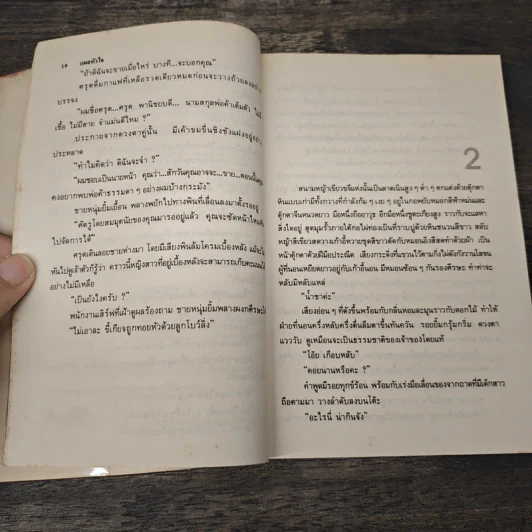 10 แผลหัวใจ
"ถ้าดิฉันจะขายเมื่อไหร่ บางที...จะบอกคุณ"
ครุตดื่มกาแฟที่เหลือรวดเดียวหมดก่อนจะวางถ้วยลงอย่าง
บรรจง
"ผมชื่อครุต...ครุต พานิชยบดี... นามสกุลพ่อค้าเต็มตัว
เชื้อ ไม่มีสาย จำแม่นดีไหม ?"
ประกายจากดวงตาคู่นั้น มีเค้าขมขื่นชิงชังแฝงอยู่อย่าง
ประหลาด
"ทำไมคิดว่า ดิฉันจะจำ ?"
"ผมชอบเป็นนายหน้า คุณว่า...สักวันคุณอาจจะ...ขาย...ตอนนั้น
คงอยากพบพ่อค้าธรรมดา ๆ อย่างผมบ้างกระมัง"
ชายหนุ่มยิ้มเยื้อน พลางพยักไปทางพื้นที่เลื่อนลงมาตั้งรออยู่
"ศัตรูโดยสมมุตินัยของคุณมารออยู่แล้ว คุณจะซัดหน้าไหน
ไปจัดการได้"
ครุตเดินลอยชายห่างมา โดยมีเสียงพินล้มโครมเบื้องหลัง แม้จะไม่
หันไปดูเจ้าตัวก็รู้ว่า คราวนี้หญิงสาวที่อยู่เบื้องหลังจะสามารถเก็บคะแนน
อย่างไม่มีเหลือ
"เป็นยังไงครับ ?"
พนักงานเสิร์ฟที่เฝ้าดูผลร้องถาม ชายหนุ่มยิ้มพลางผงกศีรษะ
"ไม่เอาละ ขี้เกียจถูกทอยหัวด้วยลูกโบว์ลิ่ง"
2
สนามหญ้าเขียวขจีแห่งนั้นเป็นลาดเนินสูง ๆ ต่ำ ๆ ตกแต่งด้วยตุ๊กตา
หินแบบเก่ามีทั้งกวางที่กำลังก้ม ๆ เงย ๆ อยู่ในกอพยับหมอกสีฟ้าหม่นและ
ตุ๊กตาจีนหนวดยาว มือหนึ่งถืออาวุธ อีกมือหนึ่งชูตะเกียงสูง ราวกับจะมองหา
สิ่งใดอยู่ สุดมุมรั้วภายใต้กอไผ่ทองเป็นที่ราบปูด้วยหินชนวนสีขาว สลับ
หญ้าสีเขียวสดวางเก้าอี้หวายชุดสีขาวตัดกับหมอนอิงสีสดทำด้วยผ้า เป็น
หน้าตุ๊กตาด้วยฝีมือประณีต เสียงกระดิ่งที่แขวนไว้ตามกิ่งไผ่ดังกังวานใสจน
ผู้ที่นอนเหยียดยาวอยู่กับเก้าอี้นอน มีหมอนซ้อน ๆ กันรองศีรษะ ทำท่าจะ
หลับมิหลับแหล่
"น้ำชาค่ะ"
เสียงอ่อน ๆ ที่ดังขึ้นพร้อมกับกลิ่นหอมละมุนราวกับดอกไม้ ทำให้
ฝ่ายที่นอนครึ่งหลับครึ่งตื่นลืมตาขึ้นทันควัน รอยยิ้มกรุ้มกริ่ม ดวงตา
แวววับ ดูเหมือนจะเป็นธรรมชาติของเจ้าของโดยแท้
"โอ๊ย เกือบหลับ"
"คอยนานหรือคะ ?"
คำพูดมีรอยทุกข์ร้อน พร้อมกับเร่งมือเลื่อนของจากถาดที่มีเด็กสาว
ถือตามมา วางลำดับลงบนโต๊ะ
"อะไรนี่ น่ากินจัง"